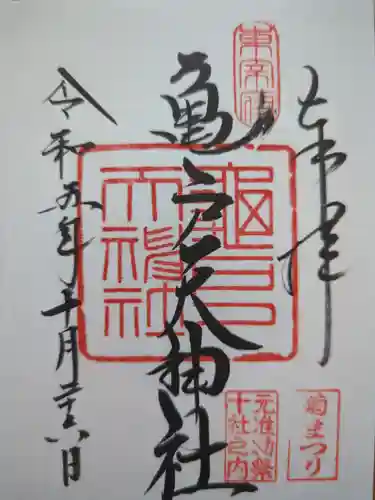 奉拝
東宰府
亀戸天神社
龜戸
天神社
令和五年十月二十八日
菊まつり
元准勅祭
十社之内